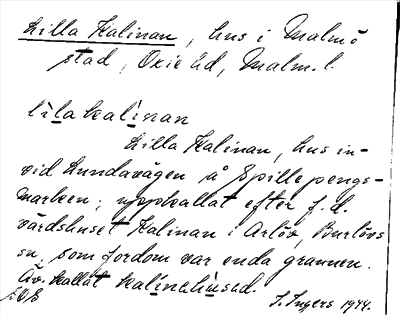 Lilla Kalinan, hus i Malmö
stad, Oxie hd, Malm. l.
lila kalinan
Lilla Kalinan, hus in-
vid Lundavägen å Spillepengs-
marken; uppkallat efter f.d.
värdshuset Kalinan i Arlöv, Burlövs
sn, som fordom var enda grannen.
Äv. kallat kalinehused.
I. Ingers 1944.